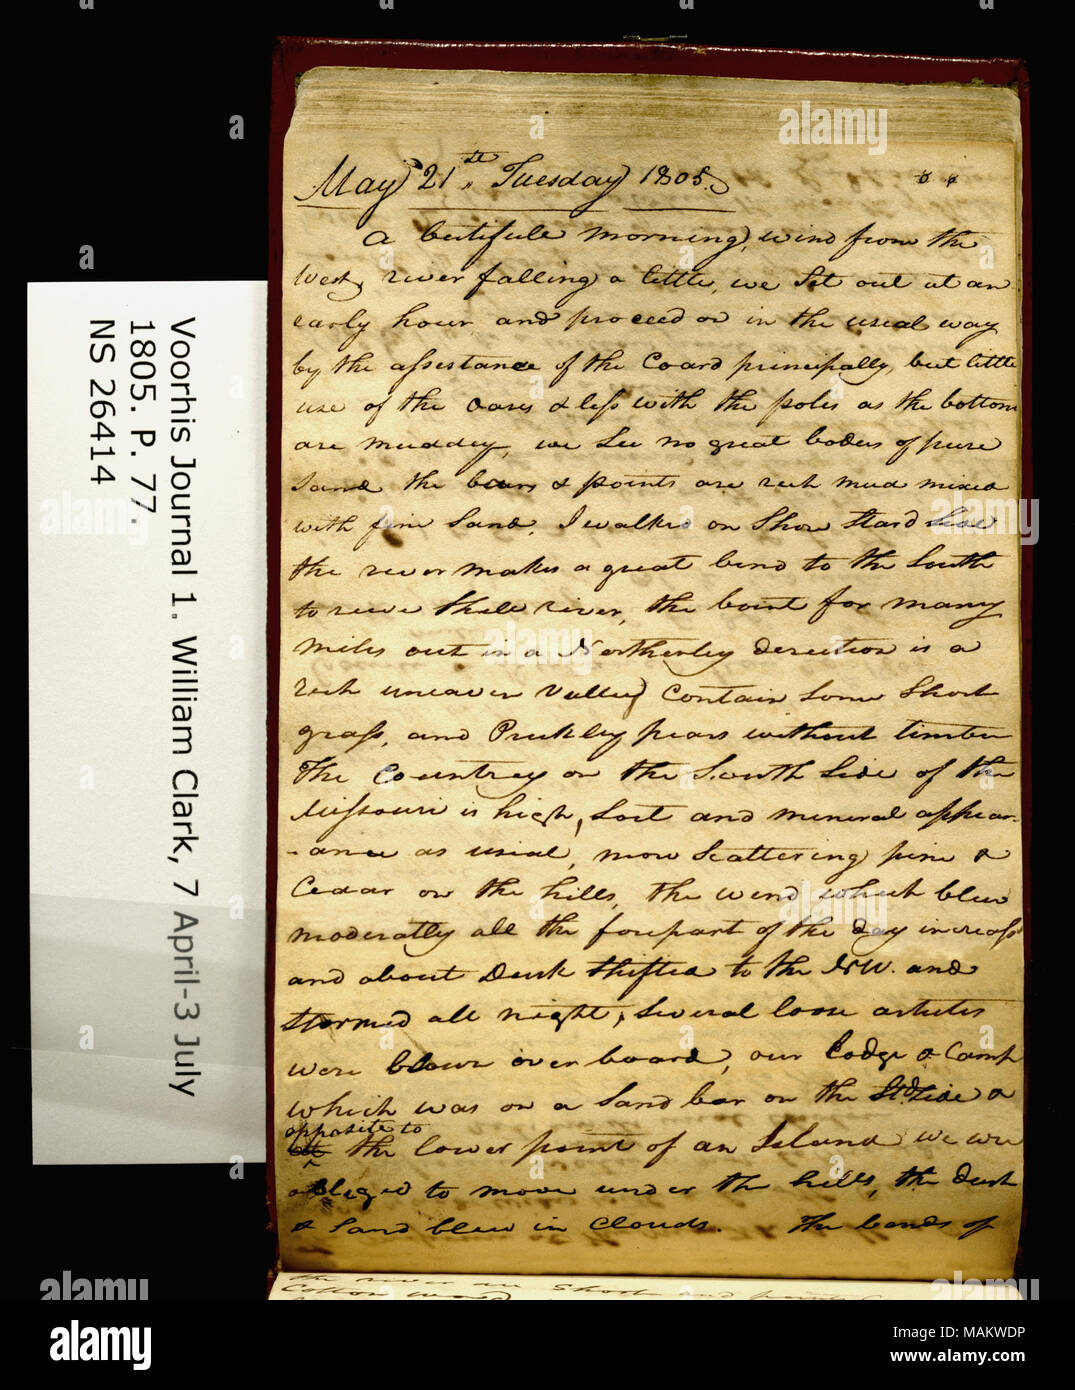 May 21st Tuesday 1805.
a butifule morning, wind from the
West, river falling a little, we Set out at an
early hour and proceed on in the usial way
by the assistance of the Coard principally, but little
use of the Oares & less with the poles as the bottom
are muddey, we See no great bodies of pure
Sand the bars & points are rich mud mixed
with fine Sand. I walked on Shore Stard Side
the river makes a great bend to the South
to reive Shell river, the boint for many
miles out in a Northerley derection is a
rich uneaven valley Contain Some Short
grass, and Prickley pears without timber
The Countrey on the South Side of the
Missouri is high, Soil and mineral appear-
-ance as usial, more Scattering pine &
Cedar on the hills, the wind which blew
moderatly all the forepart of the day increasd
and about Dusk Shifted to the N W. and
Stormed all night, Several loose articles
were blown over board, our lodge & Camp
which was on a Sand bar on the Std. Side &
opposite to
the lower point of an Island we were
obliged to move under the hills, the dust
& Sand blew in Clouds. The bends of
the river are Short and points
Cotton wood
Voorhis Journal 1. William Clark, 7 April-3 July
1805. P. 77.
NS 26414
alamy
alamy
Image ID: MAKWDP
www.alamy.com